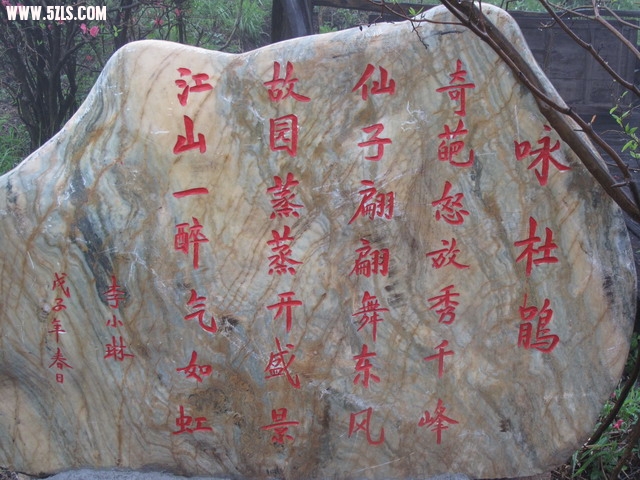 WWW.5ZLS.COM
咏杜鹃
奇葩怒放秀千峰
仙子翩翩舞东风
故园蒸蒸开盛景
江山一醉气如虹
李小琳
戊子年春日